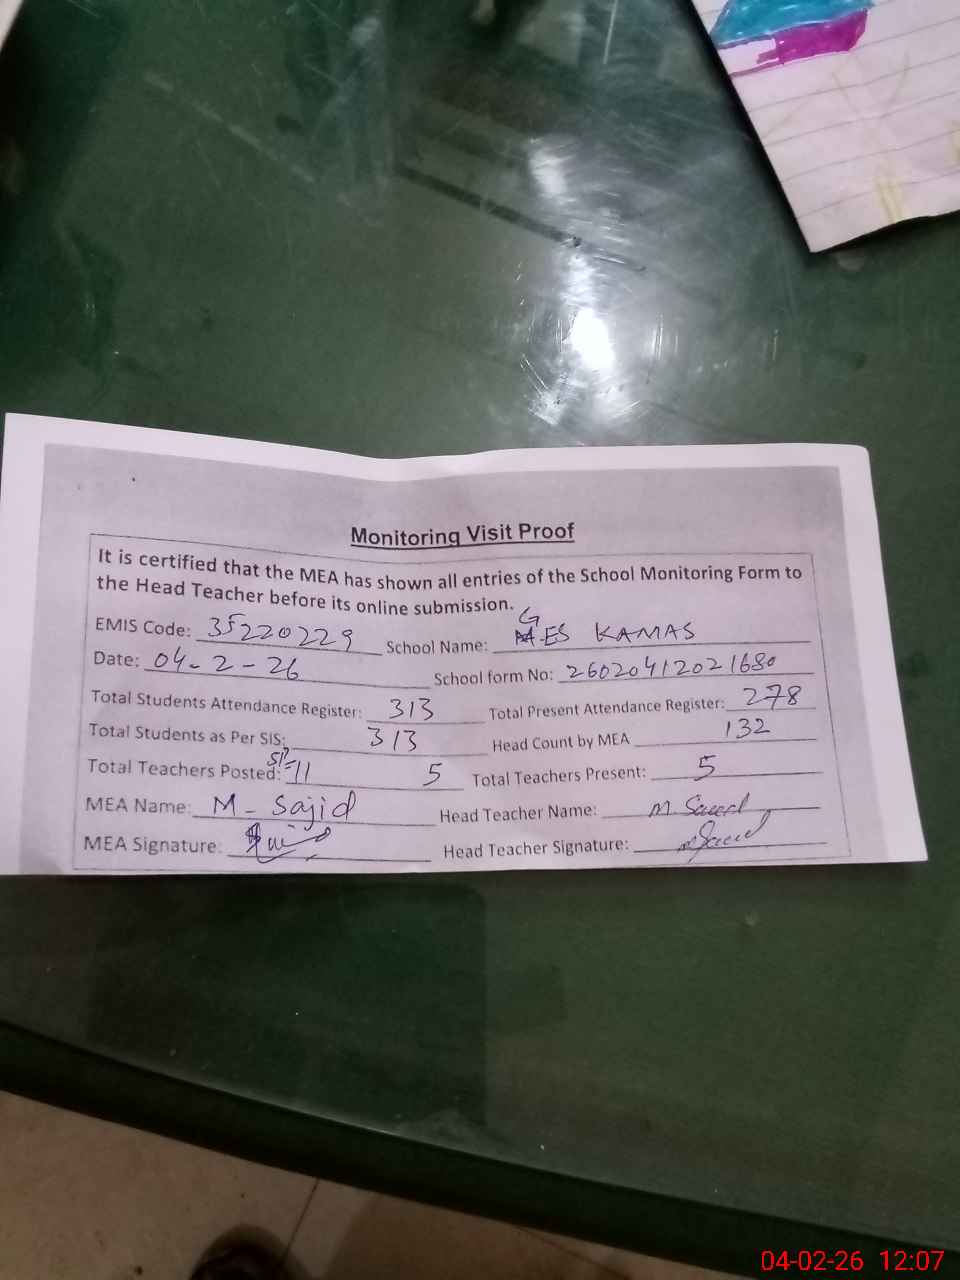 Monitoring Visit Proof
It is certified that the MEA has shown all entries of the School Monitoring Form to
the Head Teacher before its online submission.
EMIS Code: 35220229 School Name: GES KAMAS
Date: 04-2-26 School form No: 26020412021680
Total Students Attendance Register: 313 Total Present Attendance Register: 278
Total Students as Per SIS: 313 Head Count by MEA 132
Total Teachers Posted: 11 5 Total Teachers Present: 5
MEA Name: M-Sajid Head Teacher Name: M. Saeed
MEA Signature: Head Teacher Signature: M Saeed
04-02-26 12:07